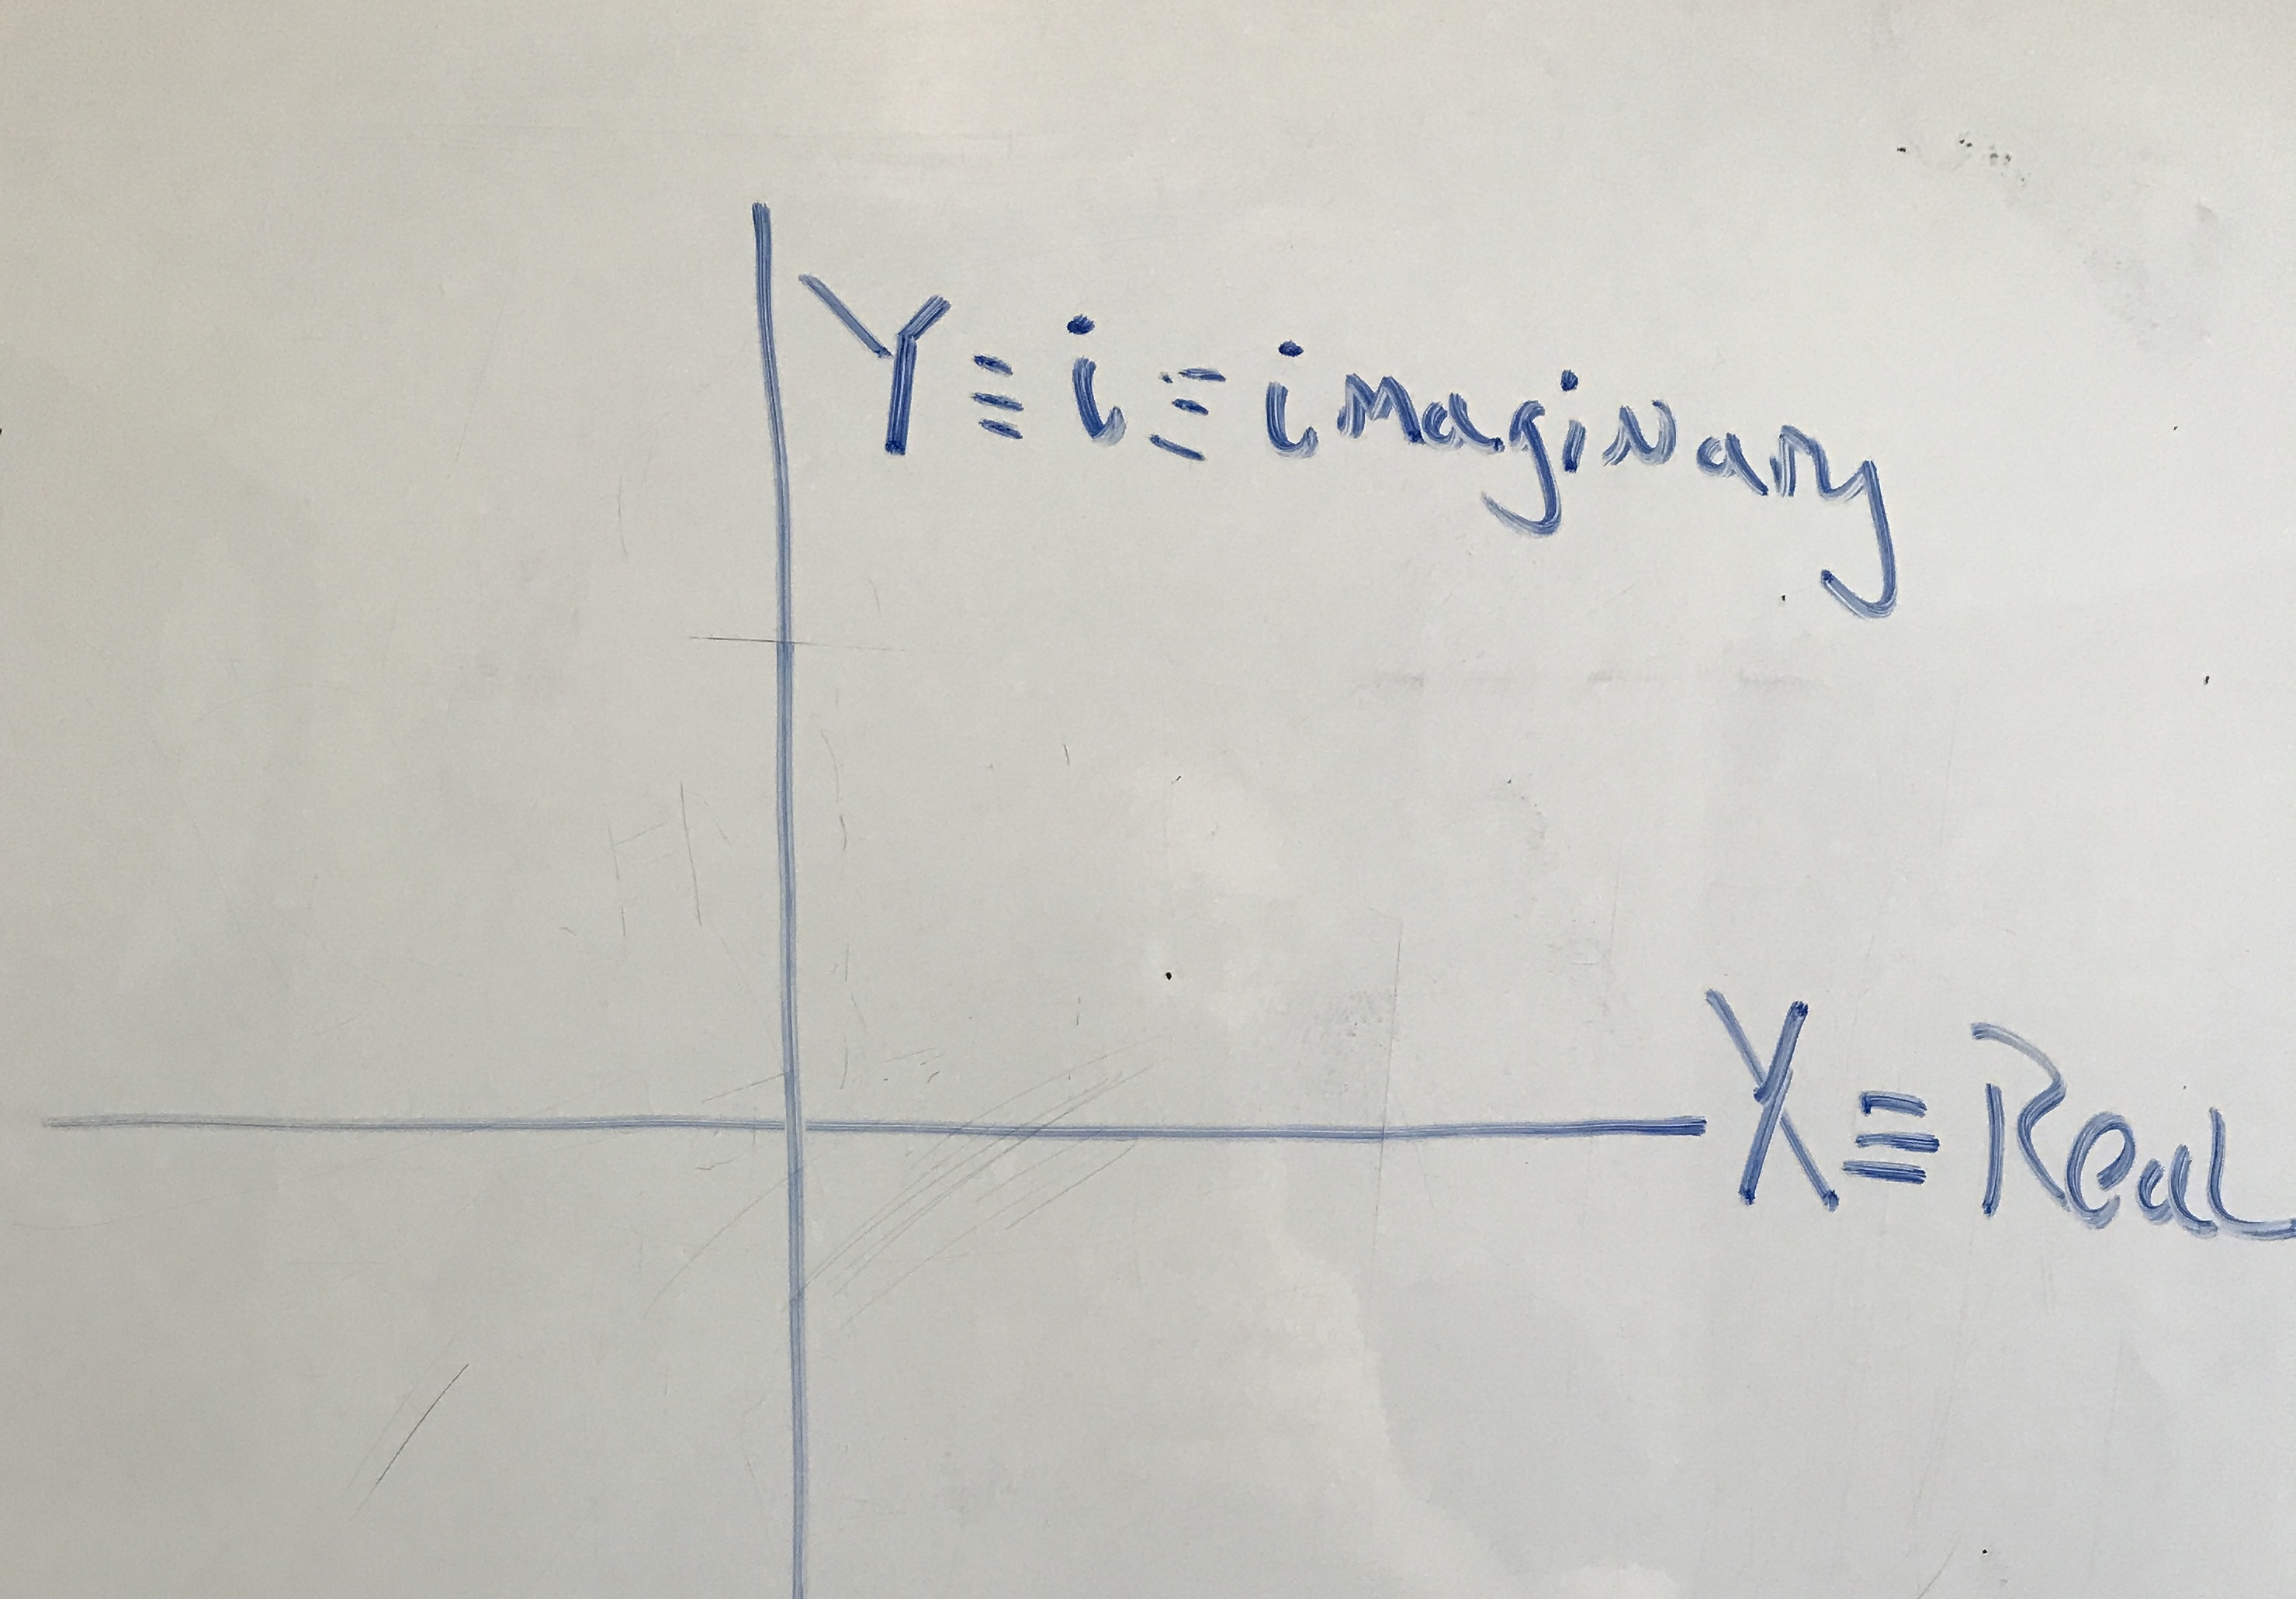 Y ≡ i ≡ imaginary
X ≡ Real